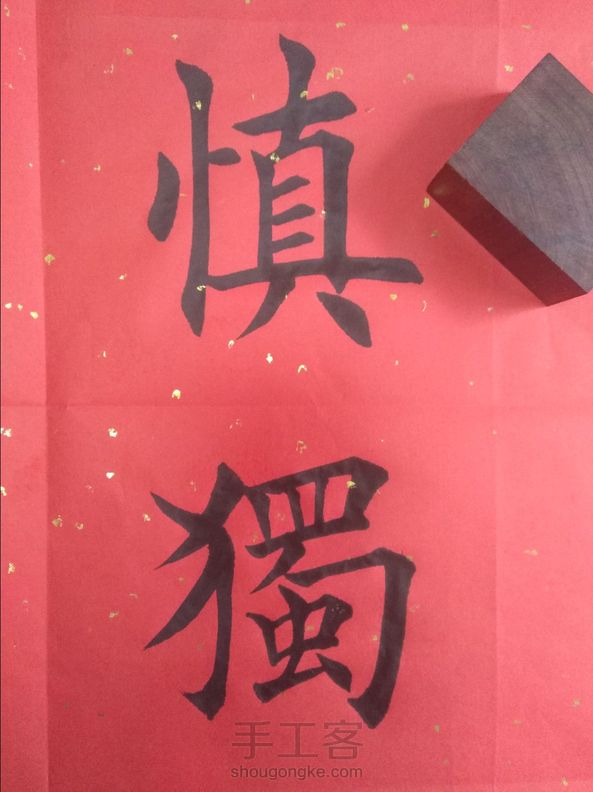 慎
獨
手工客
shougongke.com